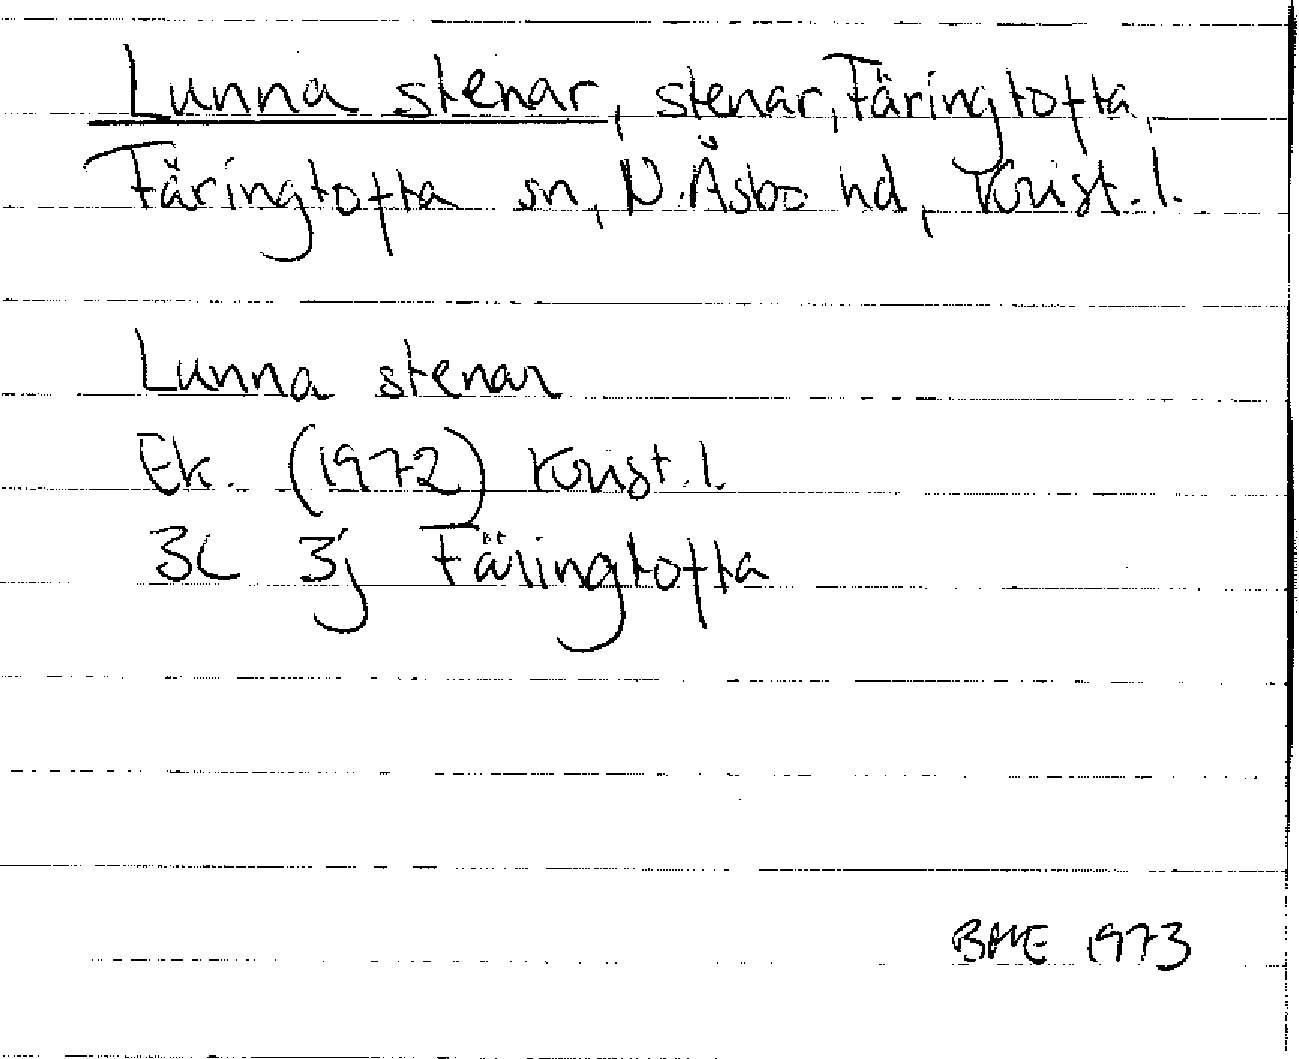 Lunna stenar, stenar, Färingtofta,
Färingtofta sn, N. Åsbo hd, Krist. l.
Lunna stenar
Ek. (1972) Krist. l.
3C 3j Färingtofta
1973